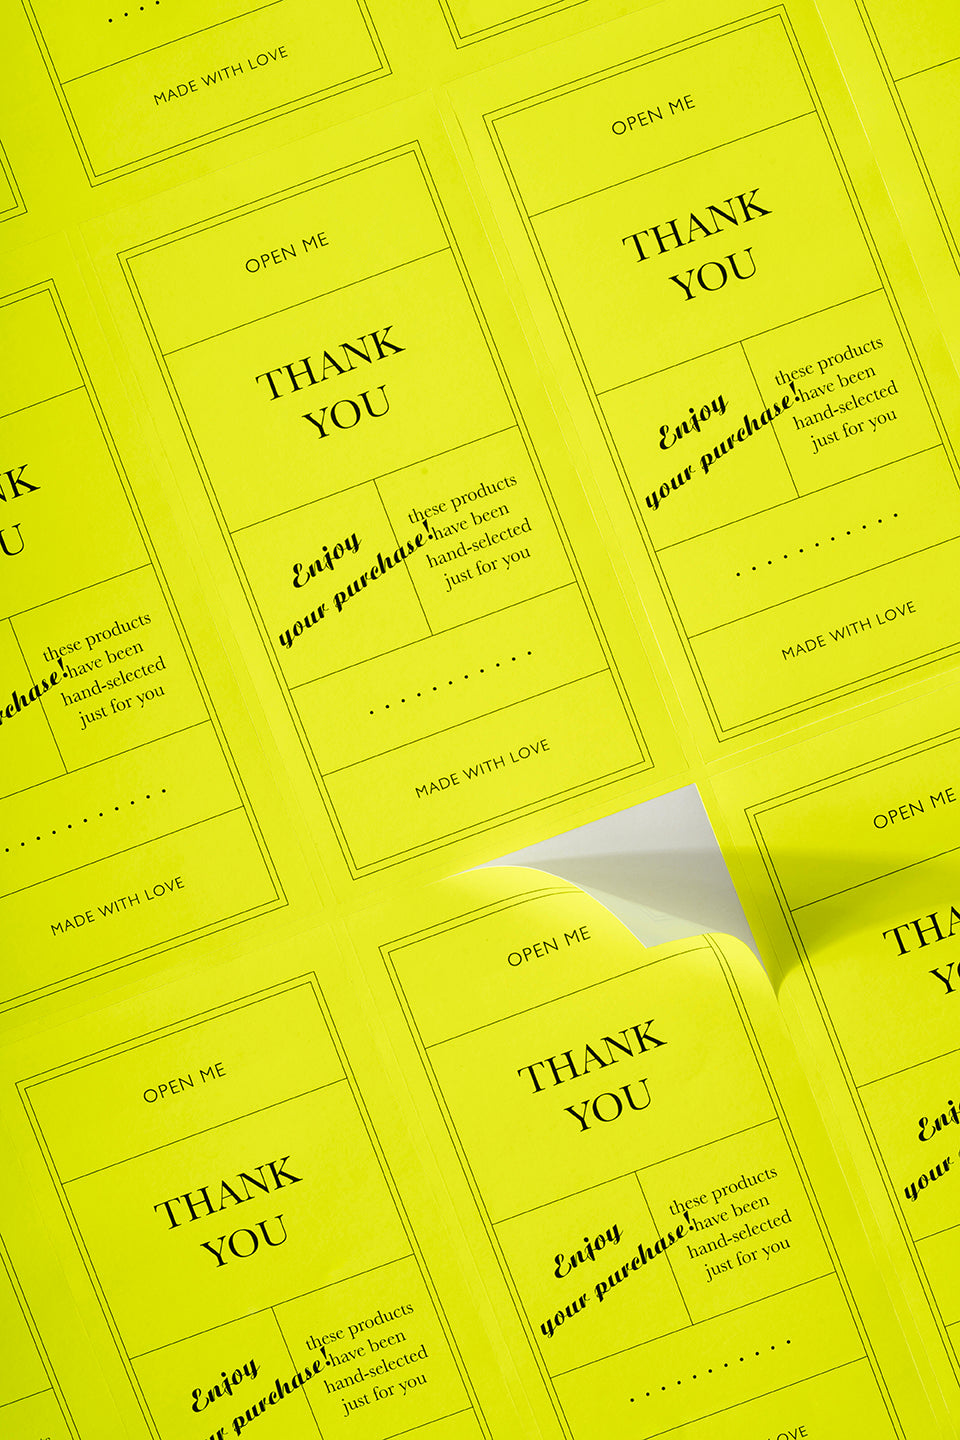 MADE WITH LOVE
OPEN ME
THANK
YOU
Enjoy
your purchase!
these products
have been
hand-selected
just for you
MADE WITH LOVE
OPEN ME
THANK
YOU
Enjoy
your purchase!
these products
have been
hand-selected
just for you
MADE WITH LOVE
these products
have been
hand-selected
just for you
MADE WITH LOVE
OPEN ME
THANK
YOU
Enjoy
these products
have been
hand-selected
just for you
OPEN ME
THANK
YOU
Enjoy
your purchase!
these products
have been
hand-selected
just for you
OPEN ME
your